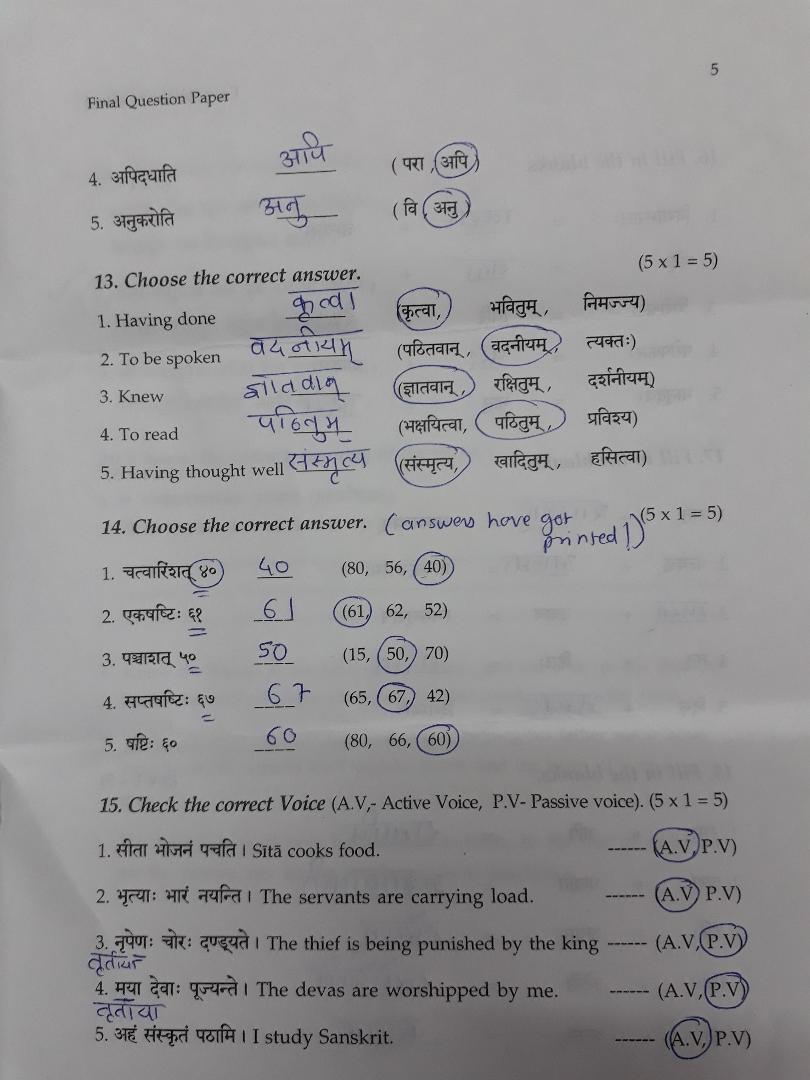 5
Final Question Paper
4. अपिदधाति अपि ( परा , अपि )
5. अनुकरोति अनु ( वि , अनु )
13. Choose the correct answer. (5 x 1 = 5)
1. Having done कृत्वा (कृत्वा, भवितुम् , निमज्ज्य)
2. To be spoken वदनीयम् (पठितवान् , वदनीयम् , त्यक्तः)
3. Knew ज्ञातवान् (ज्ञातवान् , रक्षितुम् , दर्शनीयम्)
4. To read पठितुम् (भक्षयित्वा, पठितुम् , प्रविश्य)
5. Having thought well संस्मृत्य (संस्मृत्य, खादितुम् , हसित्वा)
14. Choose the correct answer. (answers have got (5 x 1 = 5)
printed!)
1. चत्वारिंशत् ४० 40 (80, 56, 40)
2. एकषष्टिः ६१ 61 (61, 62, 52)
3. पञ्चाशत् ५० 50 (15, 50, 70)
4. सप्तषष्टिः ६७ 67 (65, 67, 42)
5. षष्टिः ६० 60 (80, 66, 60)
15. Check the correct Voice (A.V,- Active Voice, P.V- Passive voice). (5 x 1 = 5)
1. सीता भोजनं पचति । Sītā cooks food. ------ (A.V, P.V)
2. भृत्याः भारं नयन्ति । The servants are carrying load. ------ (A.V P.V)
3. नृपेणः चोरः दण्ड्यते । The thief is being punished by the king ------ (A.V, P.V)
4. मया देवाः पूज्यन्ते । The devas are worshipped by me. ------ (A.V, P.V)
तृतीया
5. अहं संस्कृतं पठामि । I study Sanskrit. ------ (A.V, P.V)